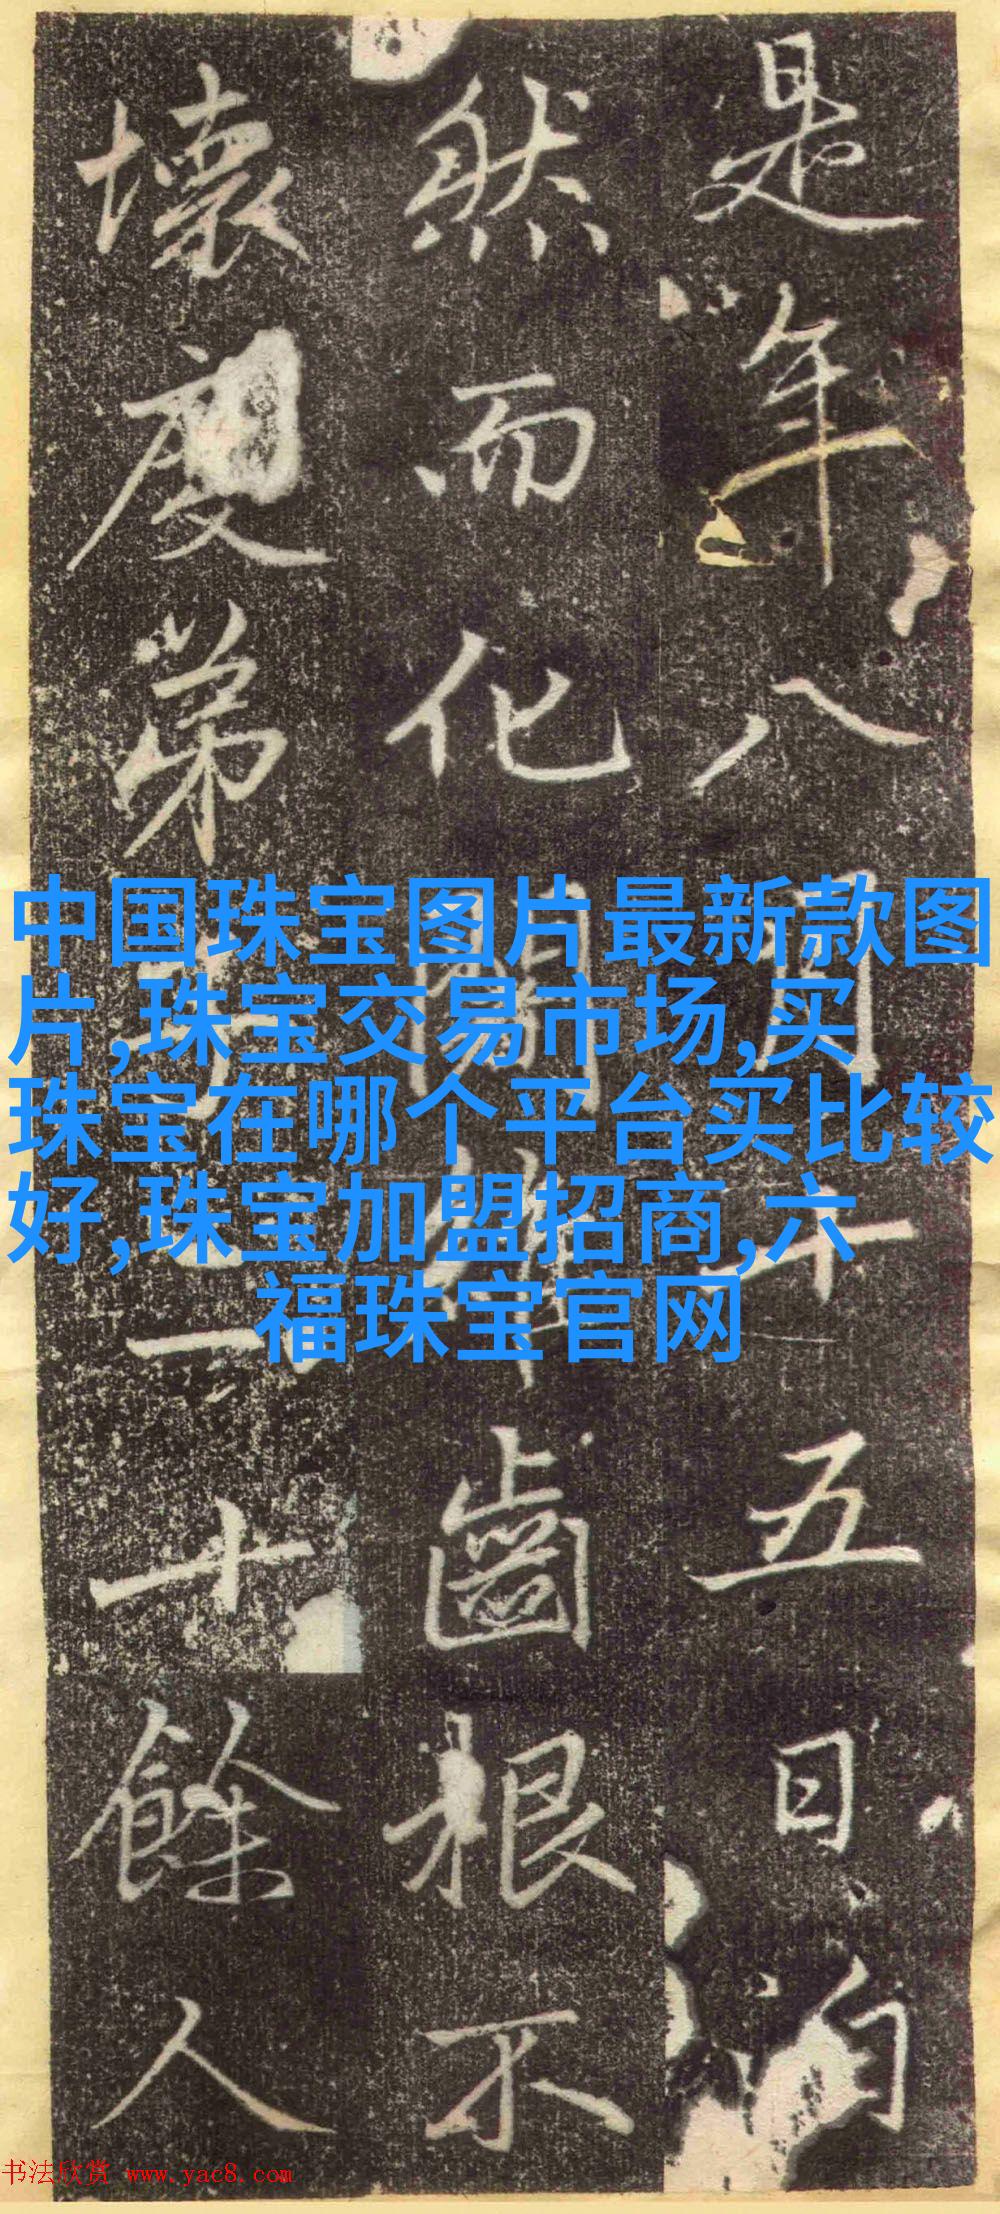 是年八月十五日自
然而化齒根不
壞度弟子十餘人
中国珠宝图片最新款图
片,珠宝交易市场,买
珠宝在哪个平台买比较
好,珠宝加盟招商,六
福珠宝官网
书法欣赏 www.yac8.com